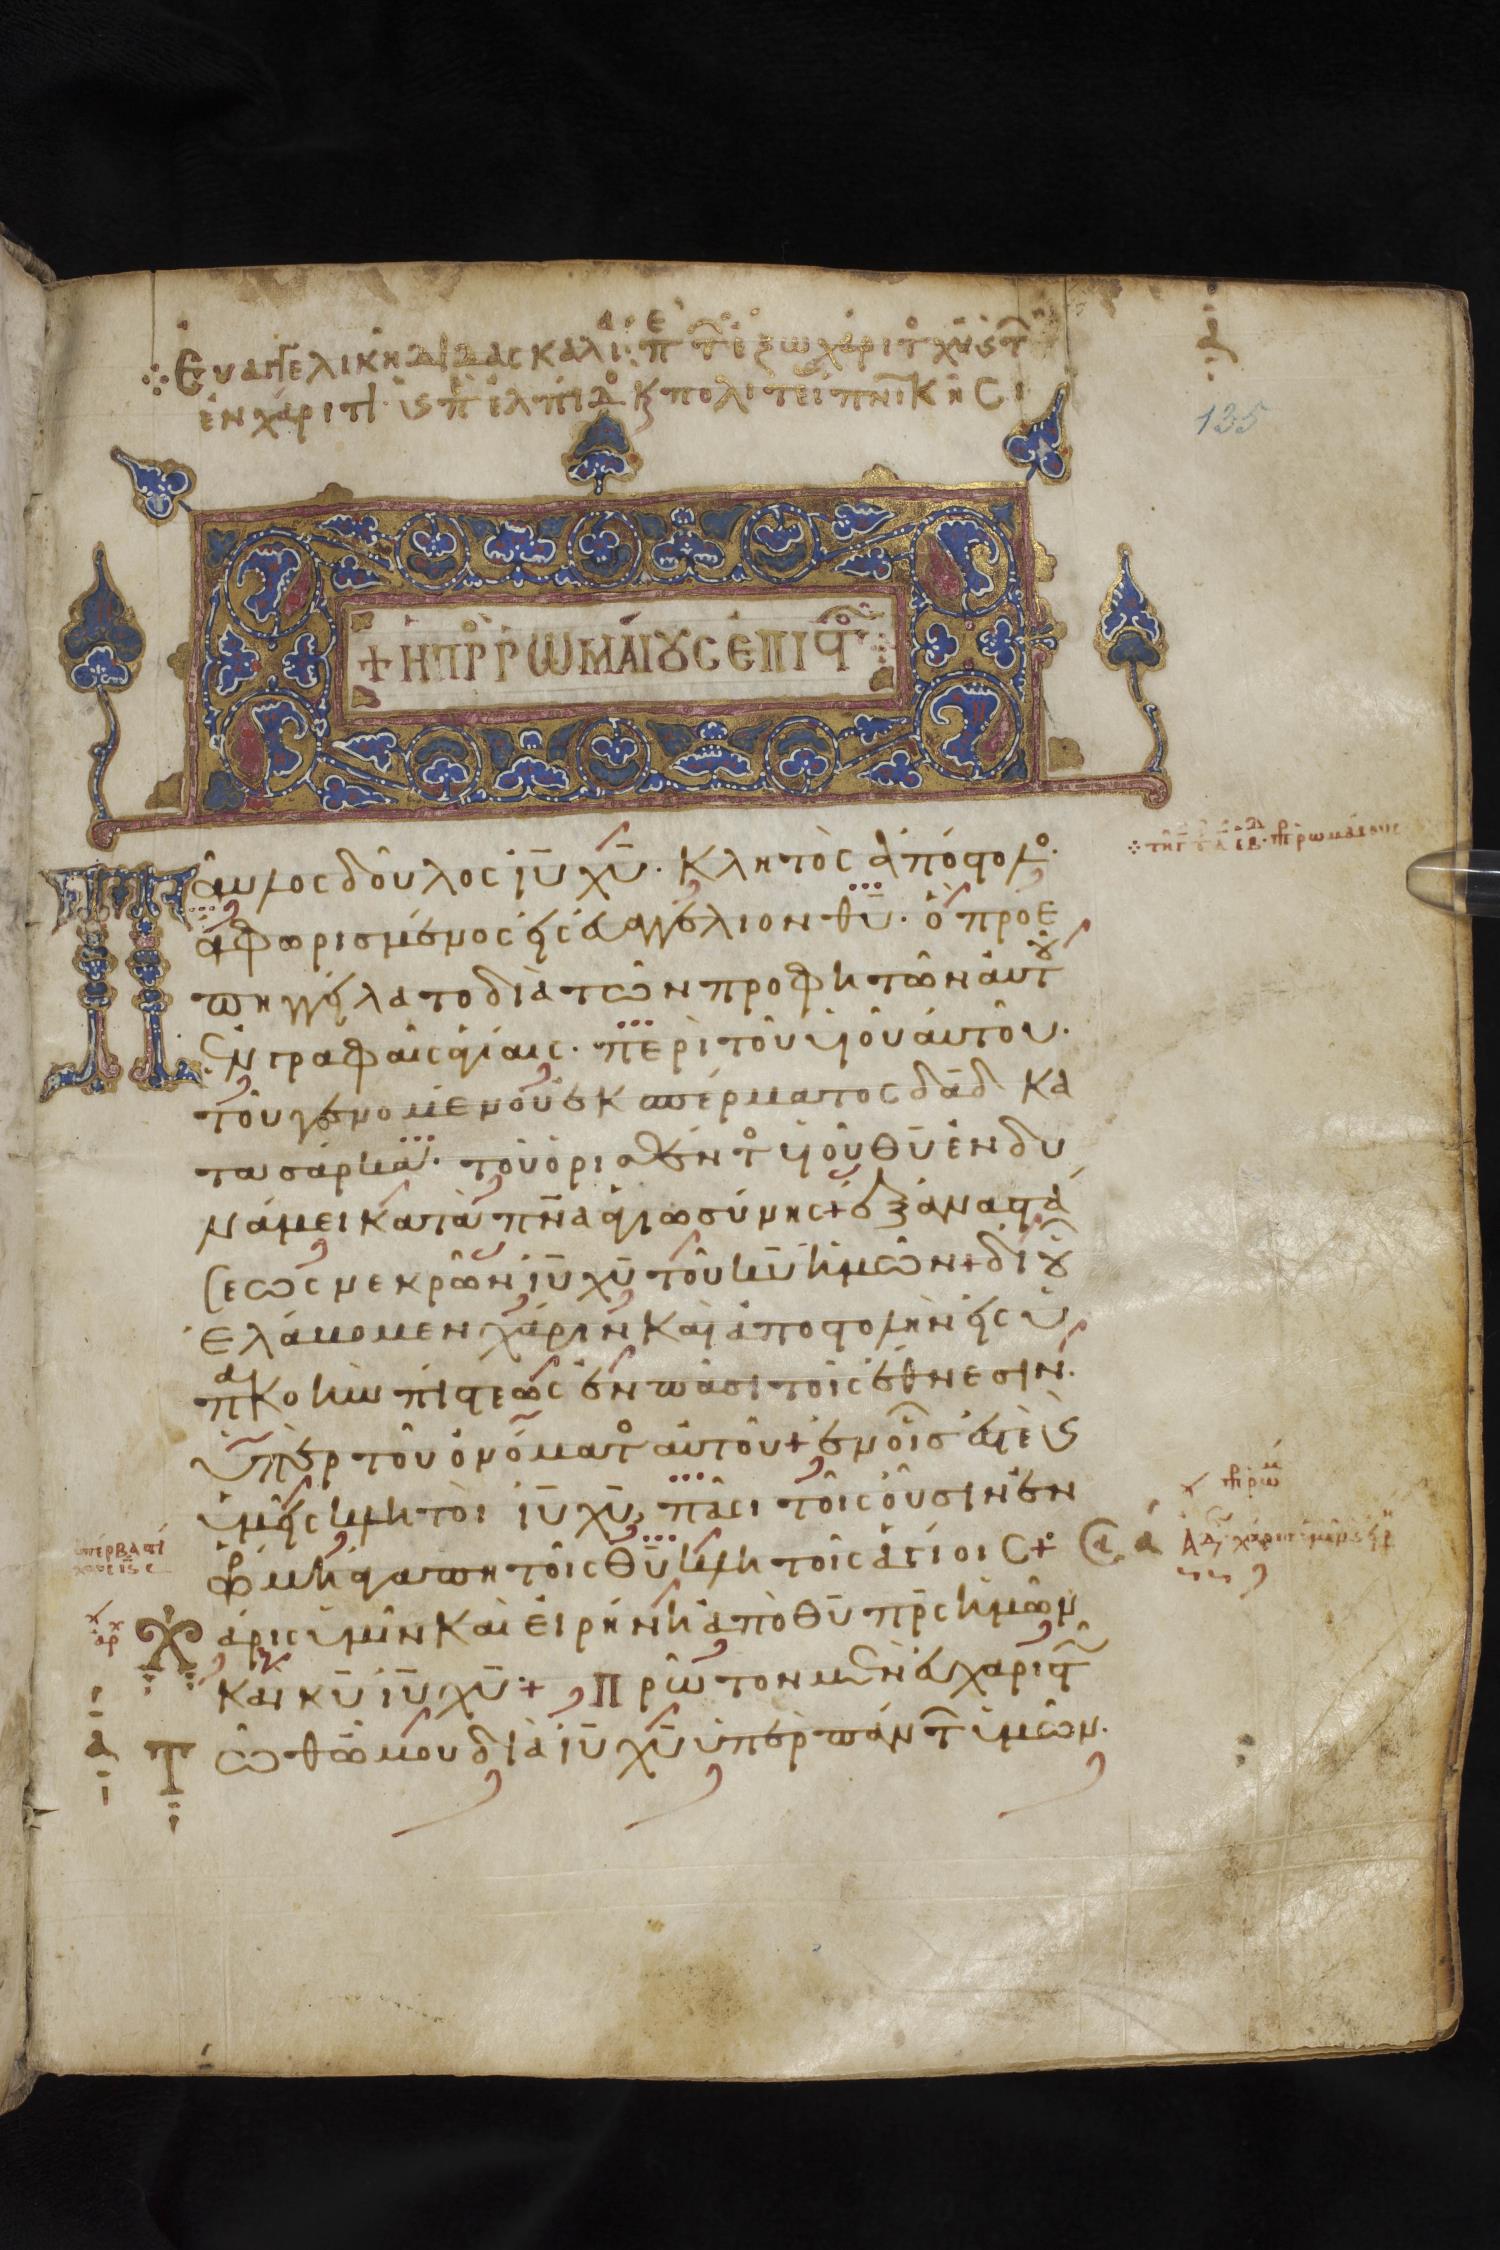 Εὐαγγελικὴ διδασκαλί
ἐν χάριτι
135
+ Η ΠΡ ΡΩΜΑΙΟΥΣ ΕΠΙϹΤ
Παῦλος δοῦλος ιυ χυ· κλητὸς ἀπόστολο·
ἀφωρισμένος εἰς εὐαγγέλιον θυ· ὃ προε
πηγγείλατο διὰ τῶν προφητῶν αὐτου
ἐν γραφαῖς ἁγίαις· περὶ τοῦ υἱοῦ αὐτοῦ·
τοῦ γενομένου ἐκ σπέρματος δαδ κα
τὰ σάρκα· τοῦ ὁρισθέντο υἱοῦ θυ ἐν δυ
νάμει κατὰ πνα ἁγιωσύνης + ἐξ ἀναστά
σεως νεκρῶν ιυ χυ τοῦ κυ ἡμῶν + δι' οὗ
ἐλάβομεν χάριν καὶ ἀποστολὴν εἰς ὑ
πακοὴν πίστεως ἐν πᾶσι τοῖς ἔθνεσιν·
ὑπὲρ τοῦ ὀνόματο αὐτοῦ + ἐν οἷς ἐστὲ ϗ
ὑμεῖς κλητοὶ ιυ χυ, πᾶσι τοῖς οὖσιν ἐν
ῥώμη ἀγαπητοῖς θυ κλητοῖς ἁγίοις +
Χάρις ὑμῖν καὶ εἰρήνη ἀπὸ θυ πρς ἡμῶν
καὶ κυ ιυ χυ + Πρῶτον μὲν εὐχαριστ
Τῶ θῶ μου διὰ ιυ χυ ὑπὲρ πάντ ὑμῶν·